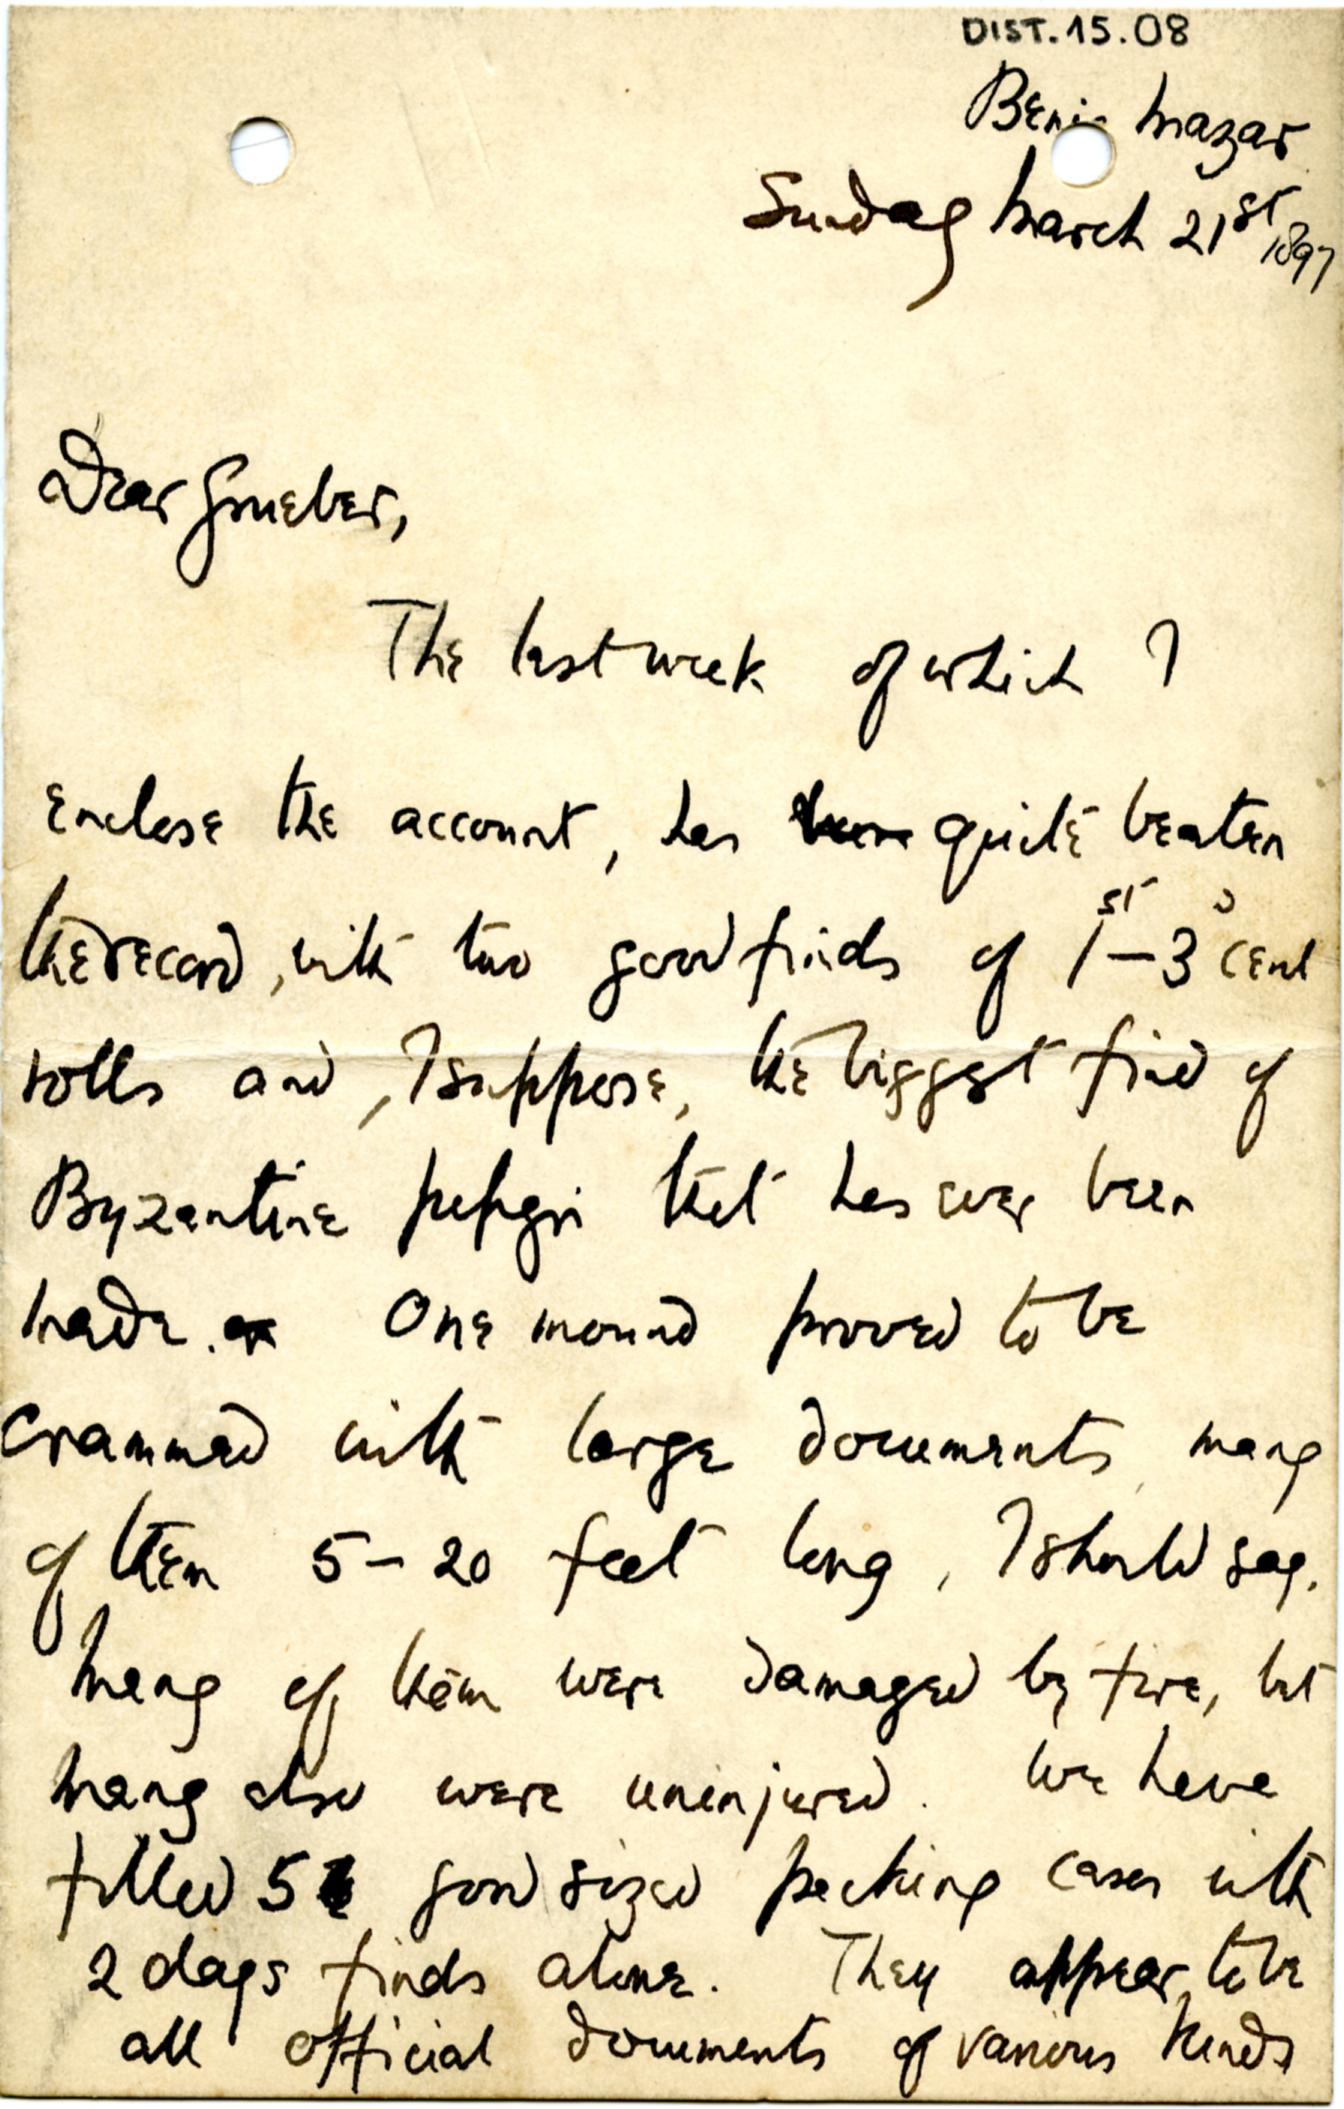 DIST.15.08
Beni Mazar
Sunday March 21st 1897
Dear Grueber,
The last week of which I
enclose the account, has quite beaten
the record, with two good finds of 1st–3d cent
rolls and, I suppose, the biggest find of
Byzantine papyri that has ever been
made. One mound proved to be
crammed with large documents, many
of them 5–20 feet long, I should say.
Many of them were damaged by fire, but
many also were uninjured. We have
filled 5 good sized packing cases with
2 days finds alone. They appear to be
all official documents of various kinds